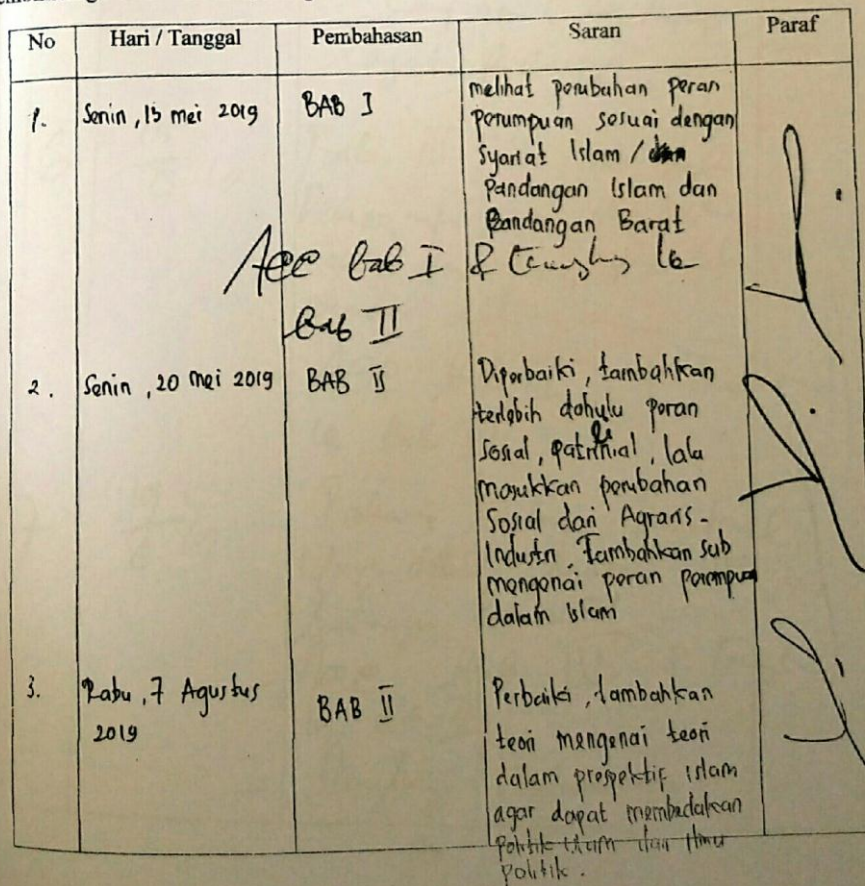 No Hari / Tanggal Pembahasan Saran Paraf
1. Senin, 13 mei 2019 BAB I melihat perubahan peran
perempuan sesuai dengan
syariat Islam /
Pandangan Islam dan
Pandangan Barat
Acc bab I &
Bab II
2. Senin, 20 mei 2019 BAB II Diperbaiki, tambahkan
terlebih dahulu peran
sosial, lalu
masukkan perubahan
Sosial dari Agraris-
Industri, Tambahkan sub
mengenai peran perempuan
dalam Islam
3. Rabu, 7 Agustus BAB II Perbaiki, tambahkan
2019 teori mengenai teori
dalam prespektif islam
agar dapat membedakan
Politik dan Ilmu
Politik.